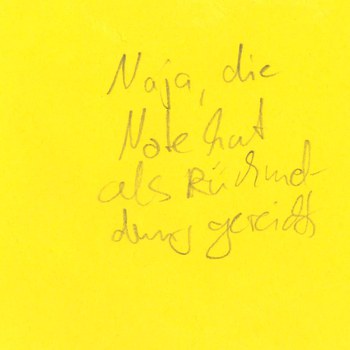 Naja, die
Note hat
als Rückmel-
dung gereicht